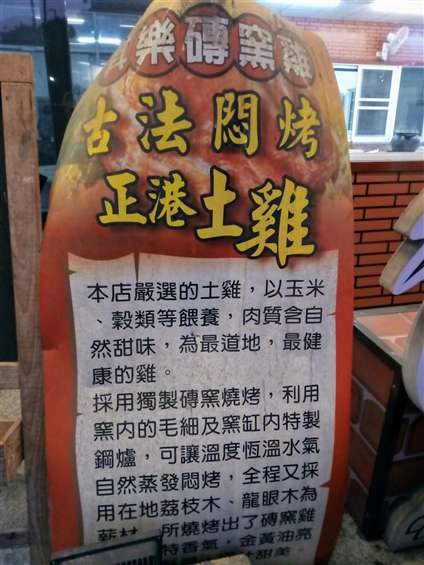 樂磚窯雞
古法悶烤
正港土雞
本店嚴選的土雞，以玉米
、穀類等餵養，肉質含自
然甜味，為最道地，最健
康的雞。
採用獨製磚窯燒烤，利用
窯內的毛細及窯缸內特製
鋼爐，可讓溫度恆溫水氣
自然蒸發悶烤，全程又採
用在地荔枝木、龍眼木為
薪材，所燒烤出了磚窯雞
特香氣，金黃油亮
甜美。